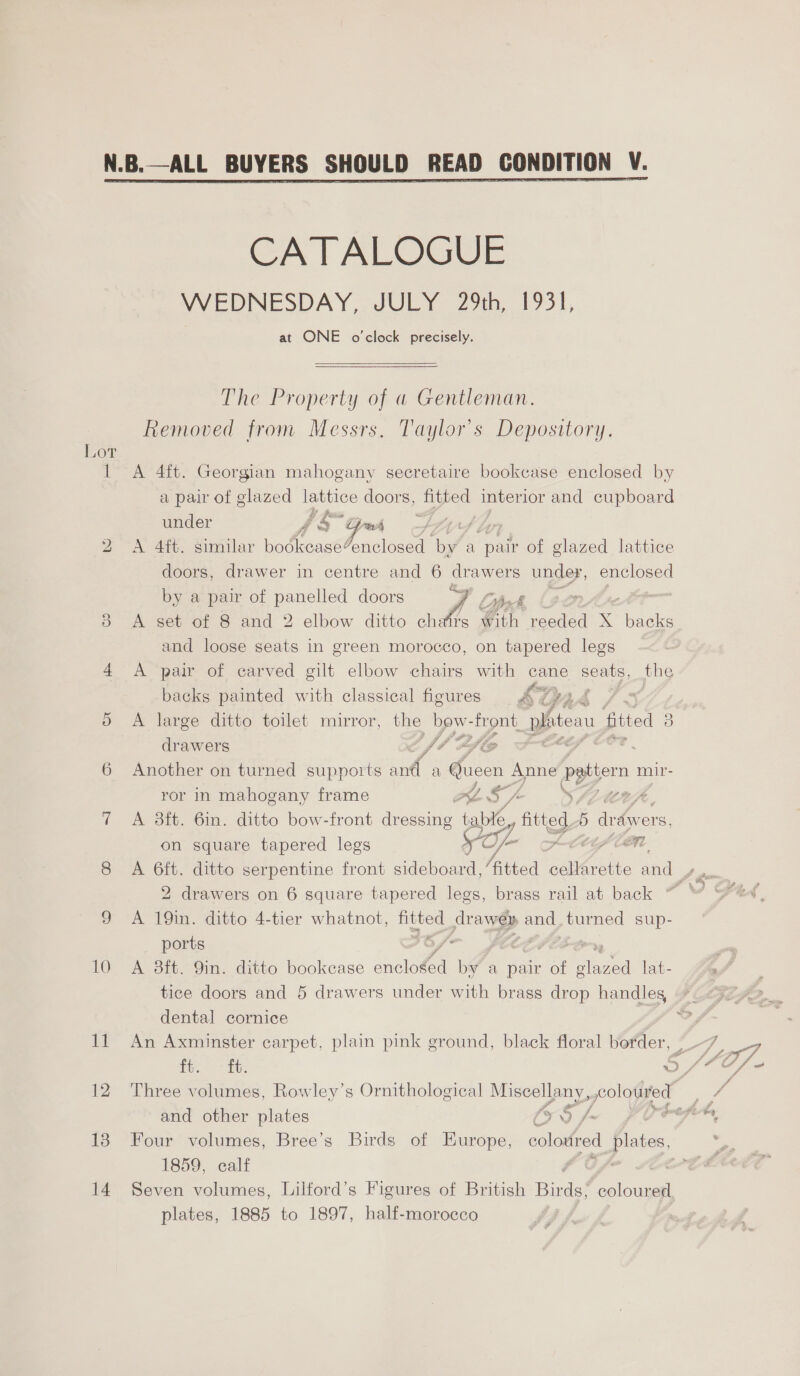 N.B.—ALL BUYERS SHOULD READ CONDITION V.
CATALOGUE
WEDNESDAY, JULY 29th, 1931,
at ONE o'clock precisely.
The Property of a Gentleman.
Removed from Messrs. Taylor's Depository.
LOT
1 A 4ft. Georgian mahogany secretaire bookcase enclosed by
a pair of glazed lattice doors, fitted interior and cupboard
under
2 A 4ft. similar bookcase enclosed by a pair of glazed lattice
doors, drawer in centre and 6 drawers under, enclosed
by a pair of panelled doors
3 A set of 8 and 2 elbow ditto chairs with reeded X backs
and loose seats in green morocco, on tapered legs
4 A pair of carved gilt elbow chairs with cane seats, the
backs painted with classical figures
5 A large ditto toilet mirror, the bow-front plateau fitted 3
drawers
6 Another on turned supports and a Queen Anne pattern mir-
ror in mahogany frame
7 A 3ft. 6in. ditto bow-front dressing table, fitted 5 drawers,
on square tapered legs
8 A 6ft. ditto serpentine front sideboard, fitted cellarette and
2 drawers on 6 square tapered legs, brass rail at back
9 A 19in. ditto 4-tier whatnot, fitted drawer and turned sup-
ports
10 A 3ft. 9in. ditto bookcase enclosed by a pair of glazed lat-
tice doors and 5 drawers under with brass drop handles,
dental cornice
11 An Axminster carpet, plain pink ground, black floral border,
ft. ft.
12 Three volumes, Rowley's Ornithological Miscellany, coloured
and other plates
13 Four volumes, Bree's Birds of Europe, coloured plates,
1859, calf
14 Seven volumes, Lilford's Figures of British Birds, coloured
plates, 1885 to 1897, half-morocco